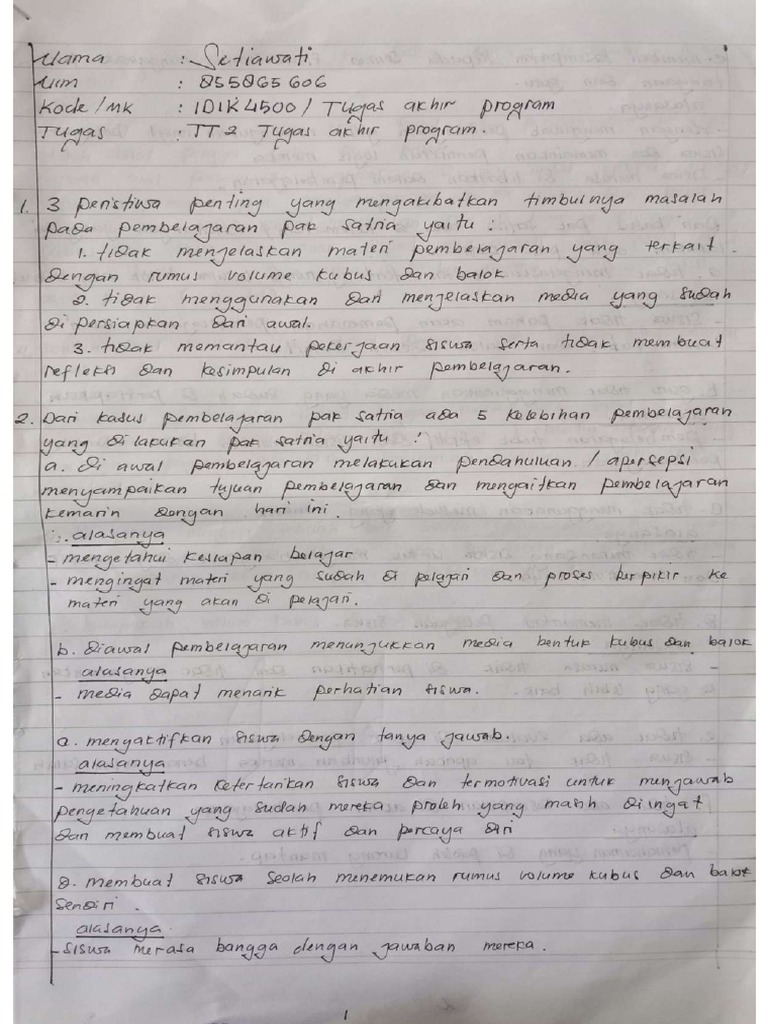 Nama : Setiawati
Nim : 855865606
Kode/MK : IDIK4500 / Tugas akhir program
Tugas : TT2 Tugas akhir program.
1. 3 peristiwa penting yang mengakibatkan timbulnya masalah
pada pembelajaran pak satria yaitu :
1. tidak menjelaskan materi pembelajaran yang terkait
dengan rumus volume kubus dan balok
2. tidak menggunakan dan menjelaskan media yang sudah
di persiapkan dari awal.
3. tidak memantau pekerjaan siswa serta tidak membuat
refleksi dan kesimpulan di akhir pembelajaran.
2. Dari kasus pembelajaran pak satria ada 5 kelebihan pembelajaran
yang dilakukan pak satria yaitu :
a. di awal pembelajaran melakukan pendahuluan / apersepsi
menyampaikan tujuan pembelajaran dan mengaitkan pembelajaran
kemarin dengan hari ini.
alasanya
- mengetahui kesiapan belajar
- mengingat materi yang sudah di pelajari dan proses berpikir ke
materi yang akan di pelajari.
b. diawal pembelajaran menunjukkan media bentuk kubus dan balok
alasanya
- media dapat menarik perhatian siswa.
a. mengaktifkan siswa dengan tanya jawab.
alasanya
- meningkatkan ketertarikan siswa dan termotivasi untuk menjawab
pengetahuan yang sudah mereka proleh yang masih diingat
dan membuat siswa aktif dan percaya diri
d. membuat siswa seolah menemukan rumus volume kubus dan balok
sendiri.
alasanya
- siswa merasa bangga dengan jawaban mereka.
1